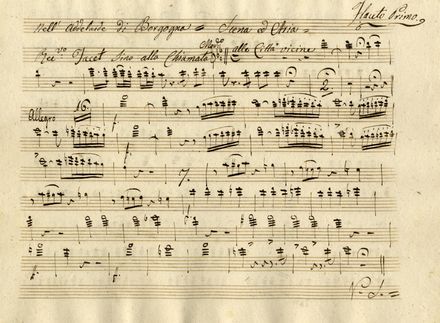 Flauto Primo
Nell' Adelaide di Borgogna = Scena ed Aria =
Rec.vo Tacet sino alla Chiamata alle Città vicine
2
Allegro 16
f.
7.
f. f.